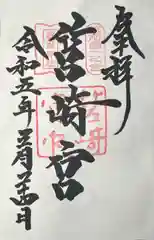 奉拝
宮崎宮
令和五年五月二十四日